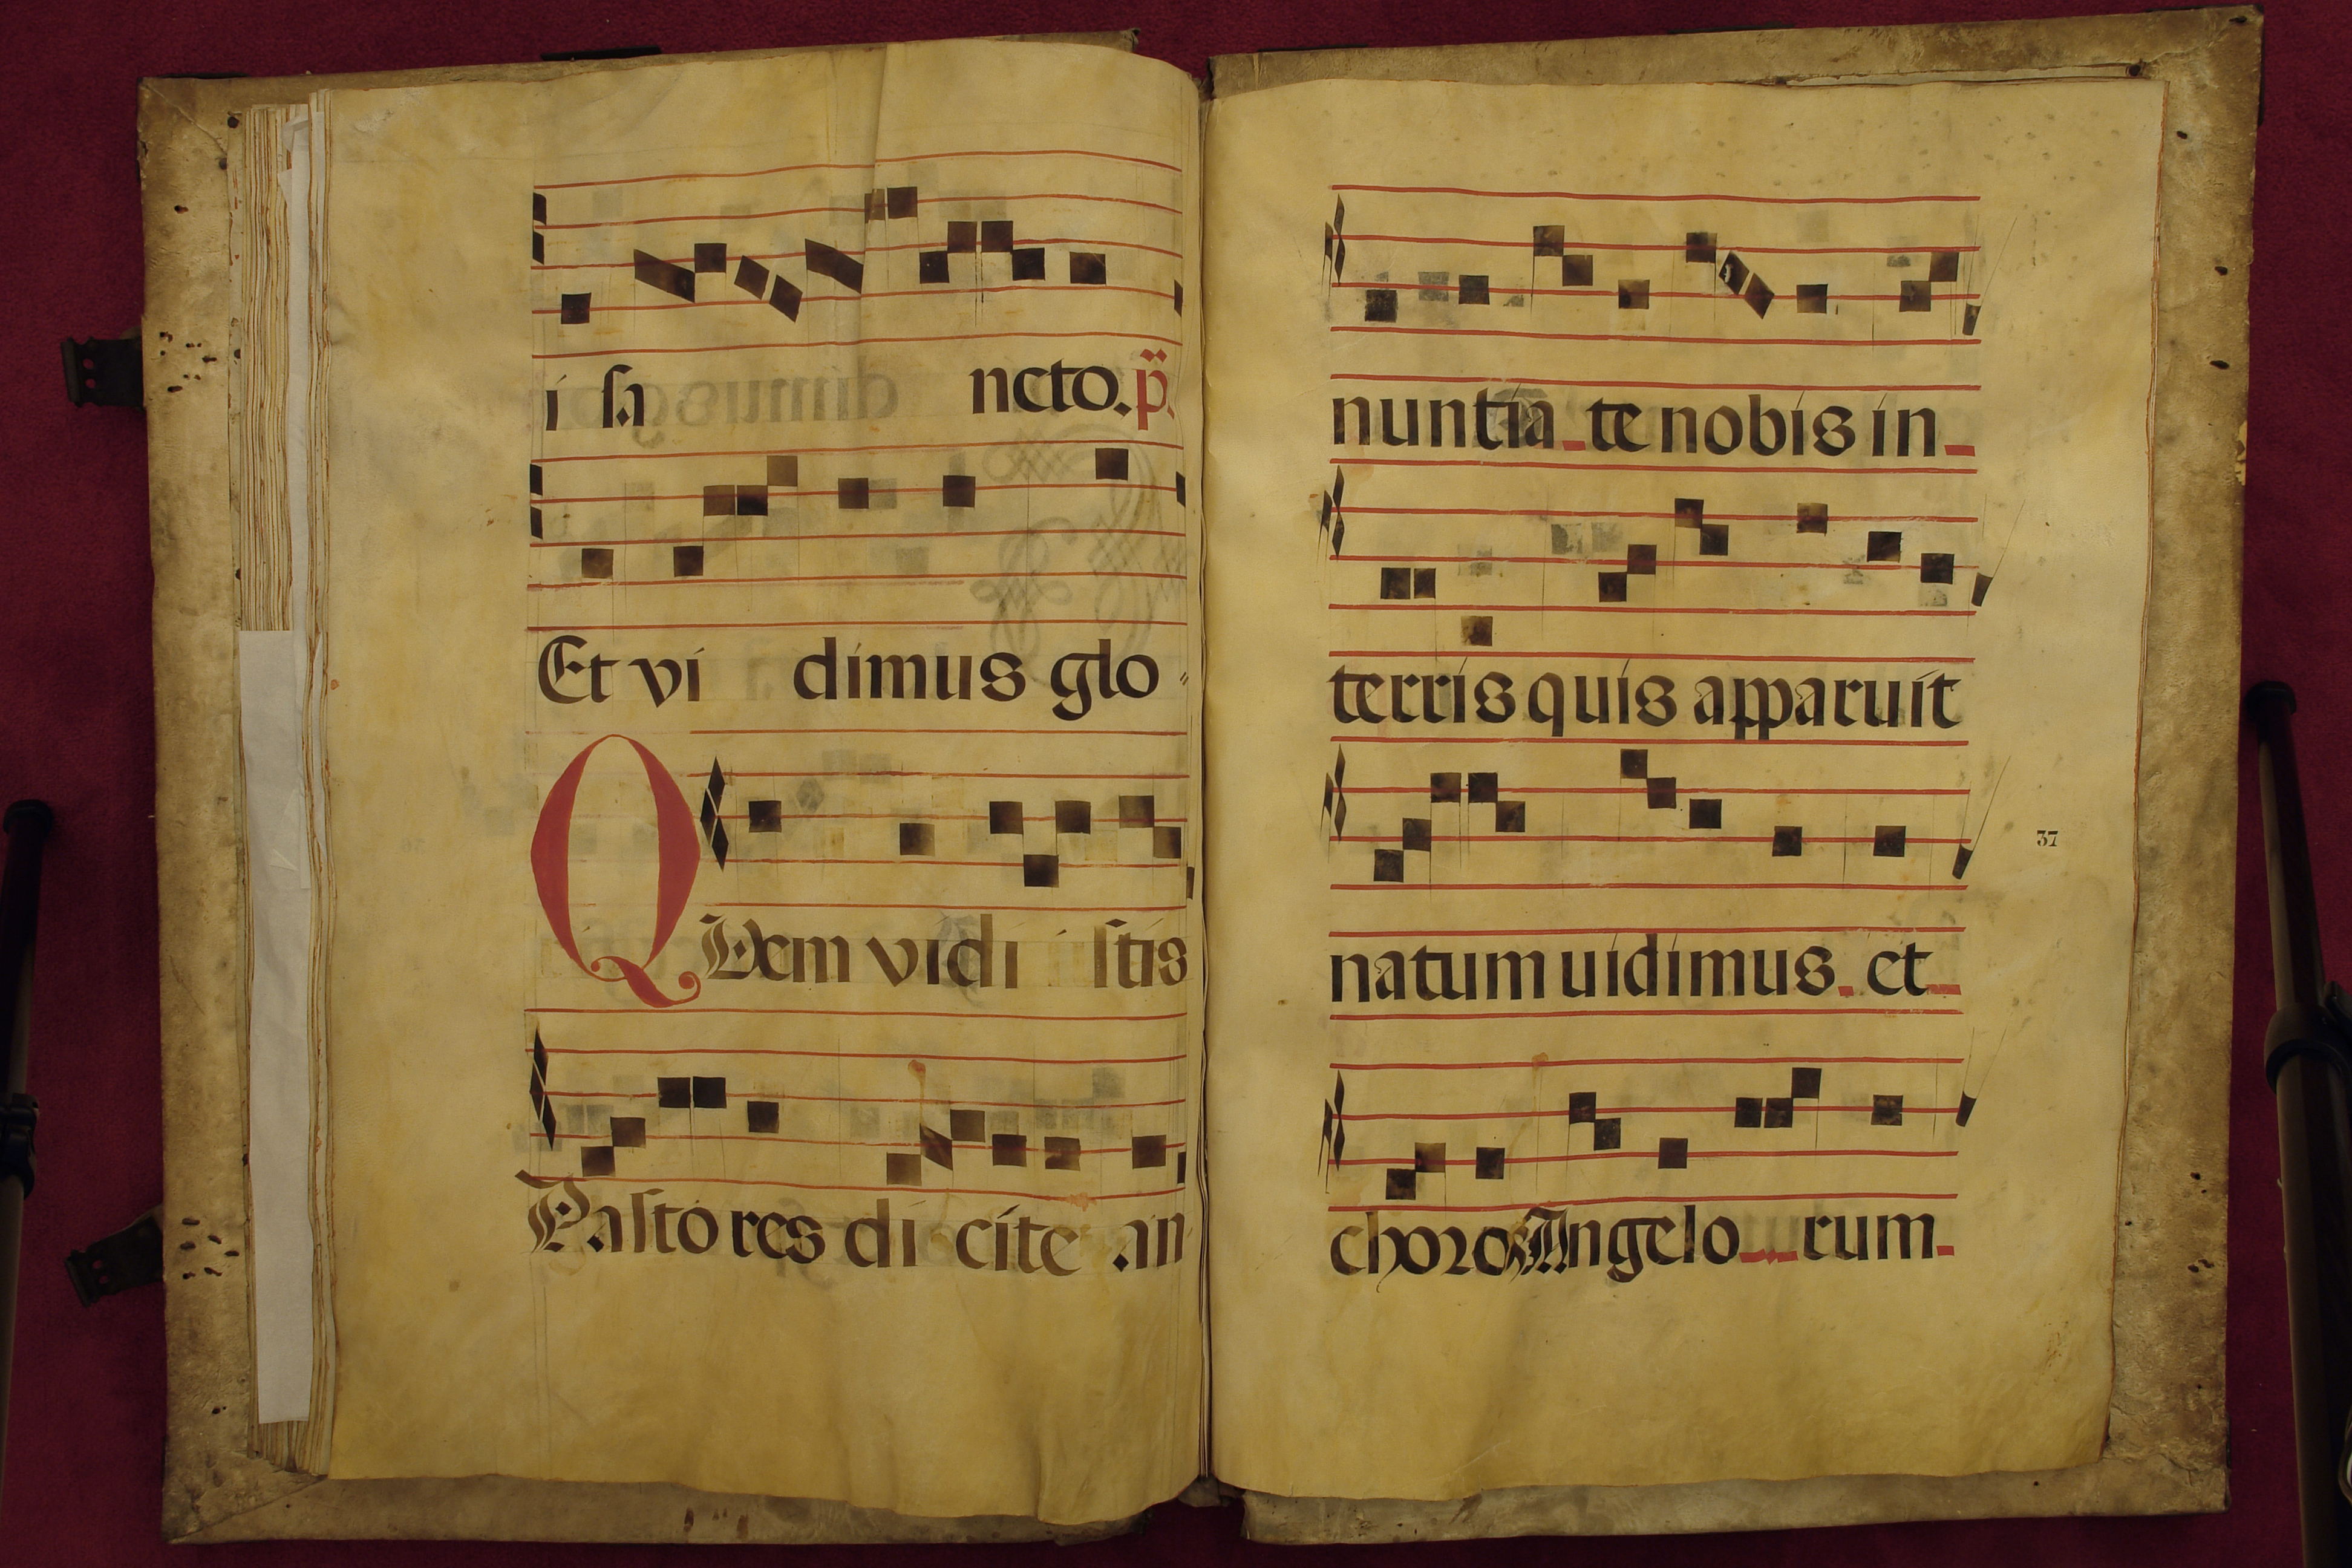 i sa ncto. p̈.
Et vi dimus glo
QUem vidi stis
Pasto res di cite an
nuntia te nobis in
terris quis apparuit
natum uidimus. et
choros Angelo rum
37